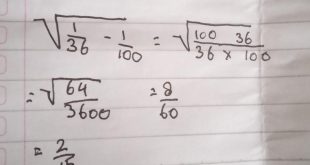 √(1/36 - 1/100) = √(100 36/36 × 100)
= √(64/3600) = 8/60
= 2/15